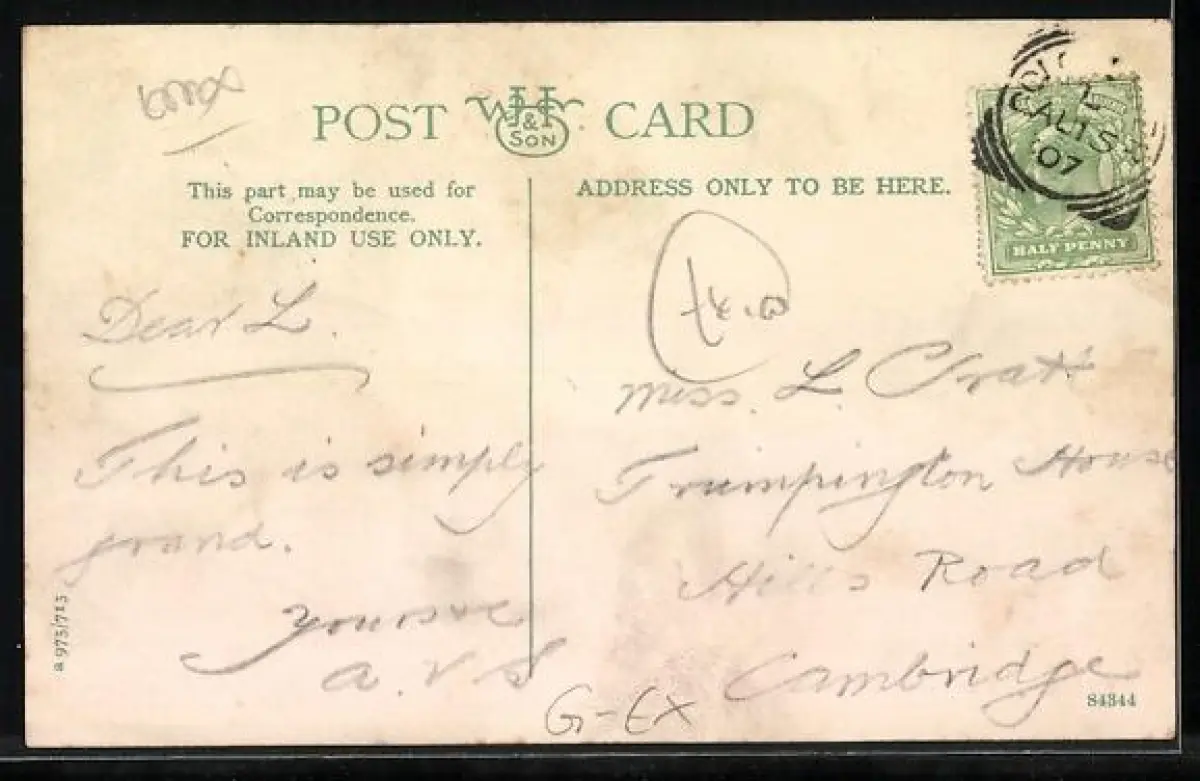 POST WHS & SON CARD
This part may be used for
Correspondence.
FOR INLAND USE ONLY.
ADDRESS ONLY TO BE HERE.
AU 5
07
HALF PENNY
Dear L.
This is simply
grand.
Yours
A.V.S
Miss. L.
Trumpington House
Hills Road
Cambridge
G-EX
a 975/713
84344